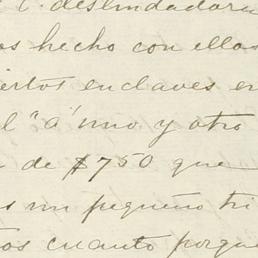 C. deslindadora
os hecho con ellas
iertos enclaves en
l "á" uno y otro
de $750 que
s un pequeño tri
tos cuanto porque